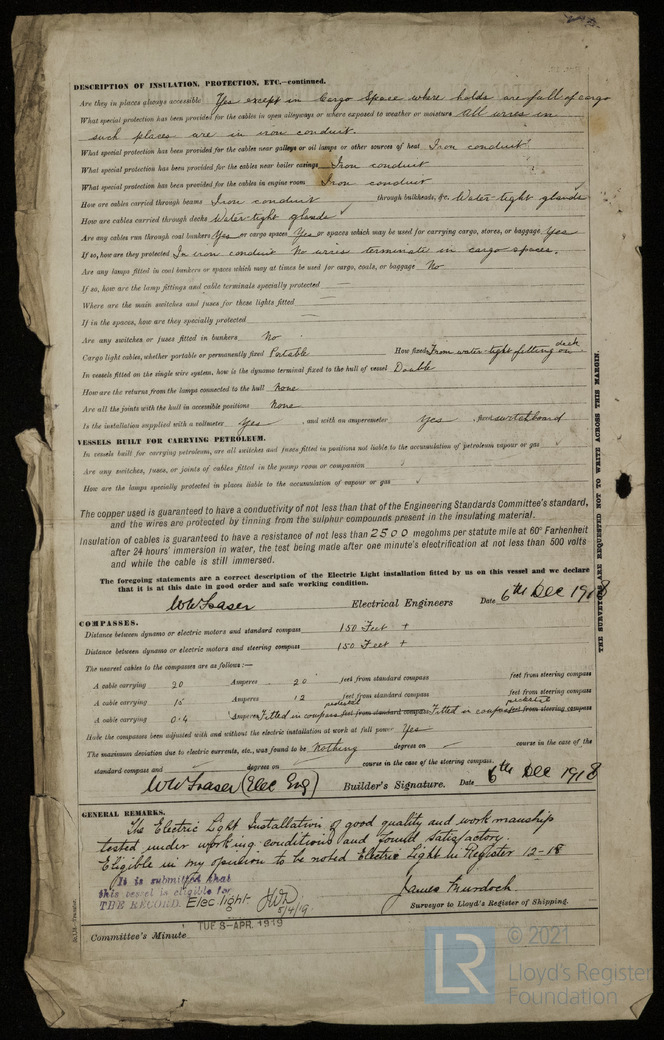 DESCRIPTION OF INSULATION, PROTECTION, ETC.—continued.
Are they in places always accessible Yes except in Cargo Space where holds are full of cargo
What special protection has been provided for the cables in open alleyways or where exposed to weather or moisture All wires in
such places are in iron conduit.
What special protection has been provided for the cables near galleys or oil lamps or other sources of heat Iron conduit
What special protection has been provided for the cables near boiler casings Iron conduit
What special protection has been provided for the cables in engine room Iron conduit
How are cables carried through beams Iron conduit through bulkheads, &c. Water-tight glands
How are cables carried through decks Water-tight glands
Are any cables run through coal bunkers Yes or cargo spaces Yes or spaces which may be used for carrying cargo, stores, or baggage Yes
If so, how are they protected In iron conduit No wires terminate in cargo spaces.
Are any lamps fitted in coal bunkers or spaces which may at times be used for cargo, coals, or baggage No
If so, how are the lamp fittings and cable terminals specially protected —
Where are the main switches and fuses for these lights fitted —
If in the spaces, how are they specially protected —
Are any switches or fuses fitted in bunkers No
Cargo light cables, whether portable or permanently fixed Portable How fixed From water-tight fitting on deck
In vessels fitted on the single wire system, how is the dynamo terminal fixed to the hull of vessel Double
How are the returns from the lamps connected to the hull None
Are all the joints with the hull in accessible positions None
Is the installation supplied with a voltmeter Yes , and with an amperemeter Yes , fixed switchboard
VESSELS BUILT FOR CARRYING PETROLEUM.
In vessels built for carrying petroleum, are all switches and fuses fitted in positions not liable to the accumulation of petroleum vapour or gas
Are any switches, fuses, or joints of cables fitted in the pump room or companion
How are the lamps specially protected in places liable to the accumulation of vapour or gas
The copper used is guaranteed to have a conductivity of not less than that of the Engineering Standards Committee's standard,
and the wires are protected by tinning from the sulphur compounds present in the insulating material.
Insulation of cables is guaranteed to have a resistance of not less than 2500 megohms per statute mile at 60° Farhenheit
after 24 hours' immersion in water, the test being made after one minute's electrification at not less than 500 volts
and while the cable is still immersed.
The foregoing statements are a correct description of the Electric Light installation fitted by us on this vessel and we declare
that it is at this date in good order and safe working condition.
WW Fraser Electrical Engineers Date 6th Dec 1918
COMPASSES.
Distance between dynamo or electric motors and standard compass 150 Feet +
Distance between dynamo or electric motors and steering compass 150 Feet +
The nearest cables to the compasses are as follows:—
A cable carrying 20 Amperes 20 feet from standard compass feet from steering compass
A cable carrying 15 Amperes 12 feet from standard compass feet from steering compass
A cable carrying 0.4 Amperes Fitted in compass pedestal feet from standard compass Fitted in compass pedestal feet from steering compass
Have the compasses been adjusted with and without the electric installation at work at full power Yes
The maximum deviation due to electric currents, etc., was found to be Nothing degrees on — course in the case of the
standard compass and — degrees on — course in the case of the steering compass.
WW Fraser (Elec Eng) Builder's Signature. Date 6th Dec 1918
GENERAL REMARKS.
The Electric Light Installation of good quality and workmanship
tested under working conditions and found satisfactory.
Eligible in my opinion to be noted Electric Light in Register 12-18
It is submitted that
this vessel is eligible for
THE RECORD. Elec light. 5/4/19.
James Murdoch.
Surveyor to Lloyd's Register of Shipping.
TUE 8-APR 1919
Committee's Minute
THE SURVEYORS ARE REQUESTED NOT TO WRITE ACROSS THIS MARGIN.
LR
© 2021
Lloyd's Register
Foundation